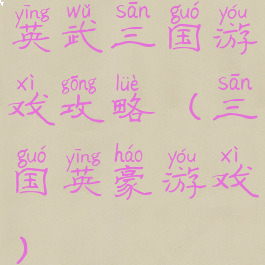 yīng wǔ sān guó yóu
英武三国游
xì gōng lüè sān
戏攻略（三
guó yīng háo yóu xì
国英豪游戏
）